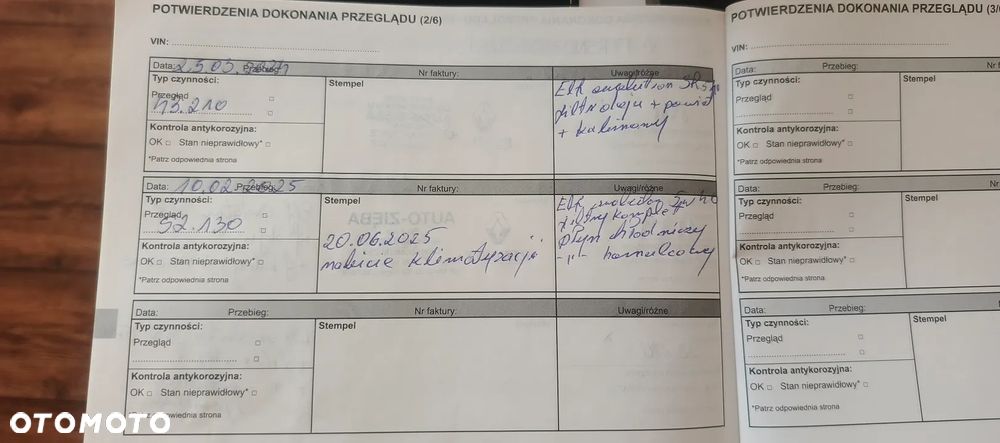 POTWIERDZENIA DOKONANIA PRZEGLĄDU (2/6)
VIN:
Data: 25.03. Przebieg: Nr faktury: Uwagi/różne
Typ czynności: Stempel
Przegląd
43.210
Kontrola antykorozyjna:
OK □ Stan nieprawidłowy* □
*Patrz odpowiednia strona
Elf evolution
filtr oleju + powiet
+ kabinowy
Data: 10.02.2025 Przebieg: Nr faktury: Uwagi/różne
Typ czynności: Stempel
Przegląd
52.130
Kontrola antykorozyjna:
OK □ Stan nieprawidłowy* □
*Patrz odpowiednia strona
AUTO-ZIĘBA
20.06.2025
nabicie klimatyzacji
Elf
filtry komplet
płyn chłodniczy
-"- hamulcowy
Data: Przebieg: Nr faktury: Uwagi/różne
Typ czynności: Stempel
Przegląd
Kontrola antykorozyjna:
OK □ Stan nieprawidłowy* □
*Patrz odpowiednia strona
POTWIERDZENIA DOKONANIA PRZEGLĄDU
VIN:
Data: Przebieg:
Typ czynności: Stempel
Przegląd
Kontrola antykorozyjna:
OK □ Stan nieprawidłowy* □
*Patrz odpowiednia strona
Data: Przebieg:
Typ czynności: Stempel
Przegląd
Kontrola antykorozyjna:
OK □ Stan nieprawidłowy* □
*Patrz odpowiednia strona
Data: Przebieg:
Typ czynności: Stempel
Przegląd
Kontrola antykorozyjna:
OK □ Stan nieprawidłowy* □
*Patrz odpowiednia strona
OTOMOTO